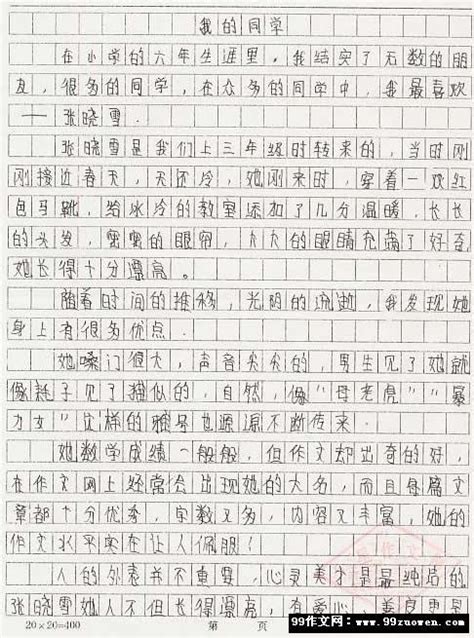 我的同学
在小学的六年生涯里，我结实了无数的朋
友，很多的同学，在众多的同学中，我最喜欢
——张晓雪.
张晓雪是我们上三年级时转来的，当时刚
刚接近春天，天还冷，她刚来时，穿着一双红
色马靴，给冰冷的教室添加了几分温暖，长长
的头发，密密的眼帘，大大的眼睛充满了好奇
她长得十分漂亮。
随着时间的推移，光阴的流逝，我发现她
身上有很多优点.
她嗓门很大，声音尖尖的，男生见了她就
像耗子见了猫似的，自然，像“母老虎”“暴
力女”这样的雅号也源源不断传来.
她数学成绩一般般，但作文却出奇的好，
在作文网上经常会出现她的大名，而且每篇文
章都十分优秀，字数又多，内容又丰富，她的
作文水平实在让人佩服！
人的外表并不重要，心灵美才是最纯洁的
张晓雪她人不但长得漂亮，有爱心，善良更是
20×20=400 第 页
99作文网:www.99zuowen.com